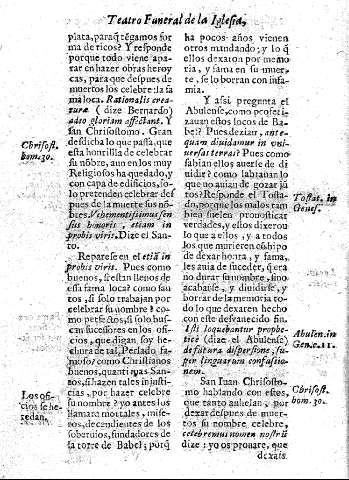 Teatro Funeral de la Iglesia,
plata, paraq̃ tẽgamos for
ma de ricos? Y responde
porque todo viene apa-
rar en hazer obras heroy
cas, para que despues de
muertos los celebre la fa
ma loca. Rationalis crea-
turæ (dize Bernardo)
adeo gloriam affectant. Y
san Chrisostomo. Gran
desdicha lo que passa, que
esta honrilla de celebrar
su nõbre, aun en los muy
Religiosos ha quedado, y
con capa de edificios, so-
lo pretenden celebrar des
pues de la muerte sus nõ-
bres. Vehementissimus sen
sus honoris, etiam in
probis viris. Dize el San-
to.
Reparese en el etiã in
probis viris. Pues como
buenos, si estan llenos de
essa fama loca? como san
tos, si solo trabajan por
celebrar su nombre? co
mo perfectos, si solo bus-
can sucessores en los ofi-
cios, que digan, soy he-
chura de tal Perlado fa-
moso? como Christianos
buenos, quanti
nos, si hazen tales injusti-
cias, por hazer celebre
su nombre? yo antes los
llamara mortales, mise-
ros, decendientes de los
soberuios, fundadores de
la torre de Babel; porq̃
Chrisost.
hom. 30.
Los ofi-
cios se he-
redan.
ha pocos años vienen
otros mandando; y lo q̃
ellos dexaron por memo
ria, y fama en su muer-
te, se lo borran con infa-
mia.
Y assi pregunta el
Abulense, como profeti-
zauan estos locos de Ba-
bel? Pues dezian, ante-
quam diuidamur in vni
uersas terras? Pues como
sabian ellos auerse de di
uidir? como labrauan lo
que no auian de gozar jũ
tos? Responde el Tosta-
do, porque los malos tam
bien suelen pronosticar
verdades, y estos dixeron
lo que a ellos, y a todos
los que murieren cõ hipo
de dexar honra, y fama,
les auia de suceder, q era
no durar su nombre, sino
acabarse, y diuidirse, y
borrar de la memoria to-
do lo que dexaren hecho
con este desvanecido fin.
Isti loquebantur prophe-
ticè (dize el Abulense)
de futura dispersione, su-
per linguarum confusio-
nem.
San Iuan Chrisosto-
mo hablando con estos,
que tanto anhelan, por
dexar despues de muer-
tos su nombre celebre,
celebremus nomen nostrũ
dize: yo os pronare, que
dexais
Tostat. in
Genes.
Abulen. in
Gen. c. 11.
Chrisost.
hom. 30.